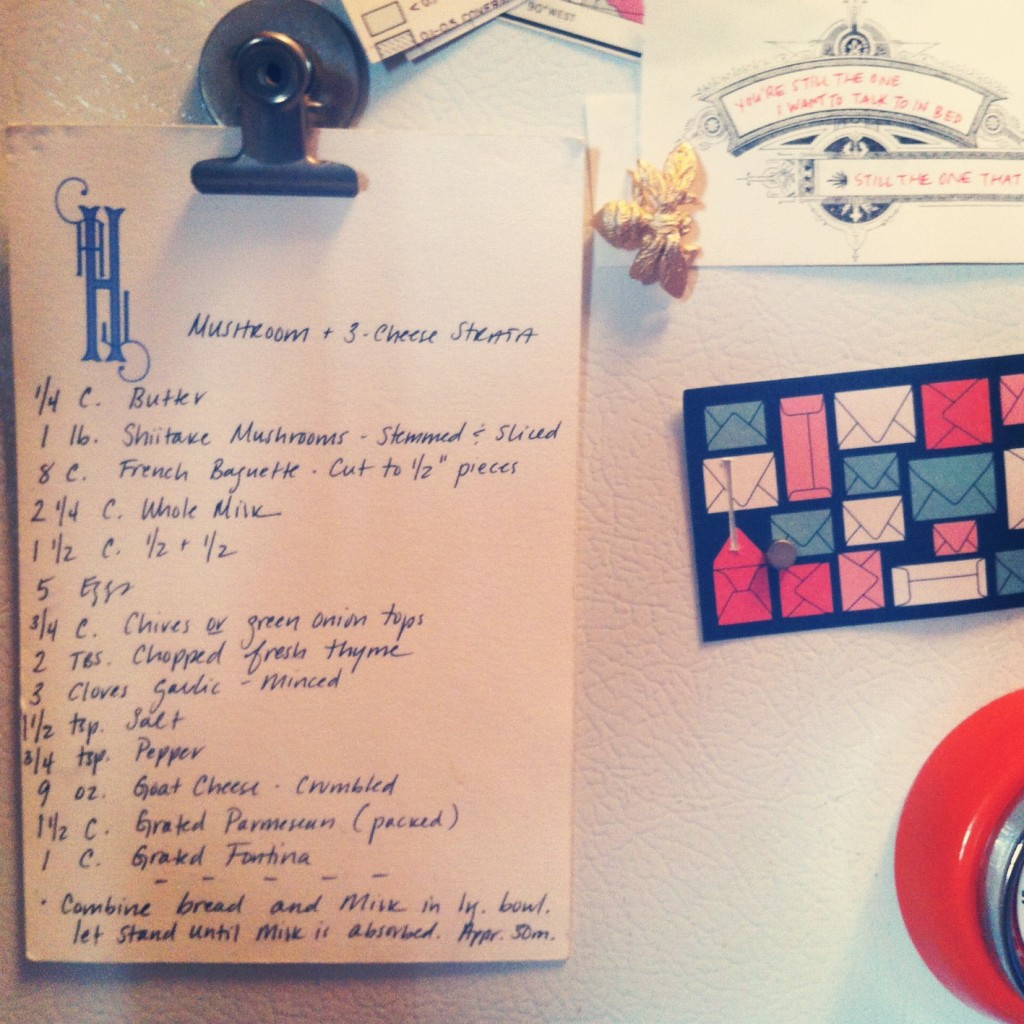 90° WEST
YOU'RE STILL THE ONE
I WANT TO TALK TO IN BED
STILL THE ONE THAT
H
Mushroom + 3-Cheese Strata
1/4 C. Butter
1 lb. Shiitake Mushrooms - Stemmed & Sliced
8 C. French Baguette - Cut to 1/2" pieces
2 1/4 C. Whole Milk
1 1/2 C. 1/2 + 1/2
5 Eggs
3/4 C. Chives or green onion tops
2 TBS. Chopped fresh thyme
3 Cloves garlic - minced
1 1/2 tsp. Salt
3/4 tsp. Pepper
9 oz. Goat Cheese - Crumbled
1 1/2 C. Grated Parmesean (packed)
1 C. Grated Fontina
· Combine bread and Milk in lg. bowl.
let stand until Milk is absorbed. Appr. 30m.